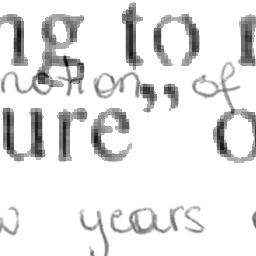 ng to
notion,, of
ure" o
years